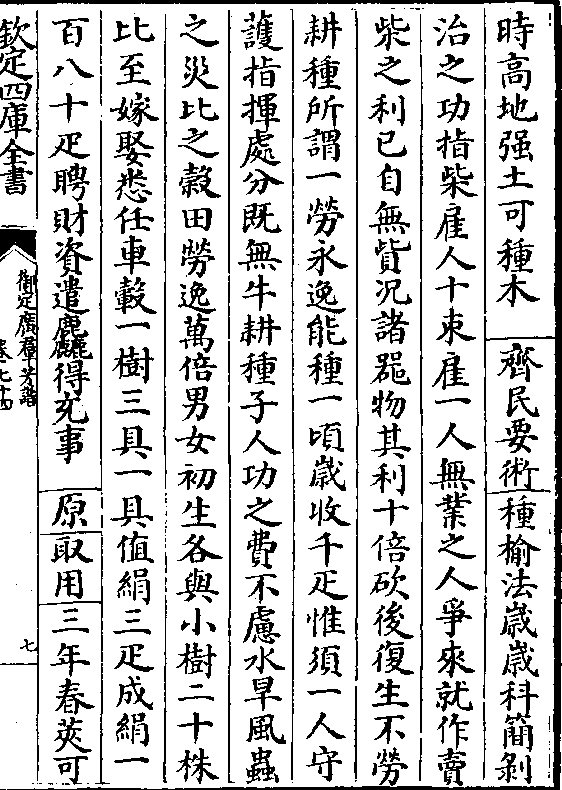 時高地强土可種木　齊民要術種榆法歳歳科簡剝
治之功指柴雇人十束雇一人無業之人爭來就作賣
柴之利已自無貲况諸器物其利十倍砍後復生不勞
耕種所謂一勞永逸能種一頃歳收千疋惟須一人守
護指揮處分既無牛耕種子人功之費不慮水旱風蟲
之災比之榖田勞逸萬倍男女初生各與小樹二十株
比至嫁娶悉任車轂一樹三具一具值絹三疋成絹一
百八十疋聘財資遣麤得充事　原取用三年春莢可
欽定四庫全書　御定廣羣芳譜　卷七十四　七